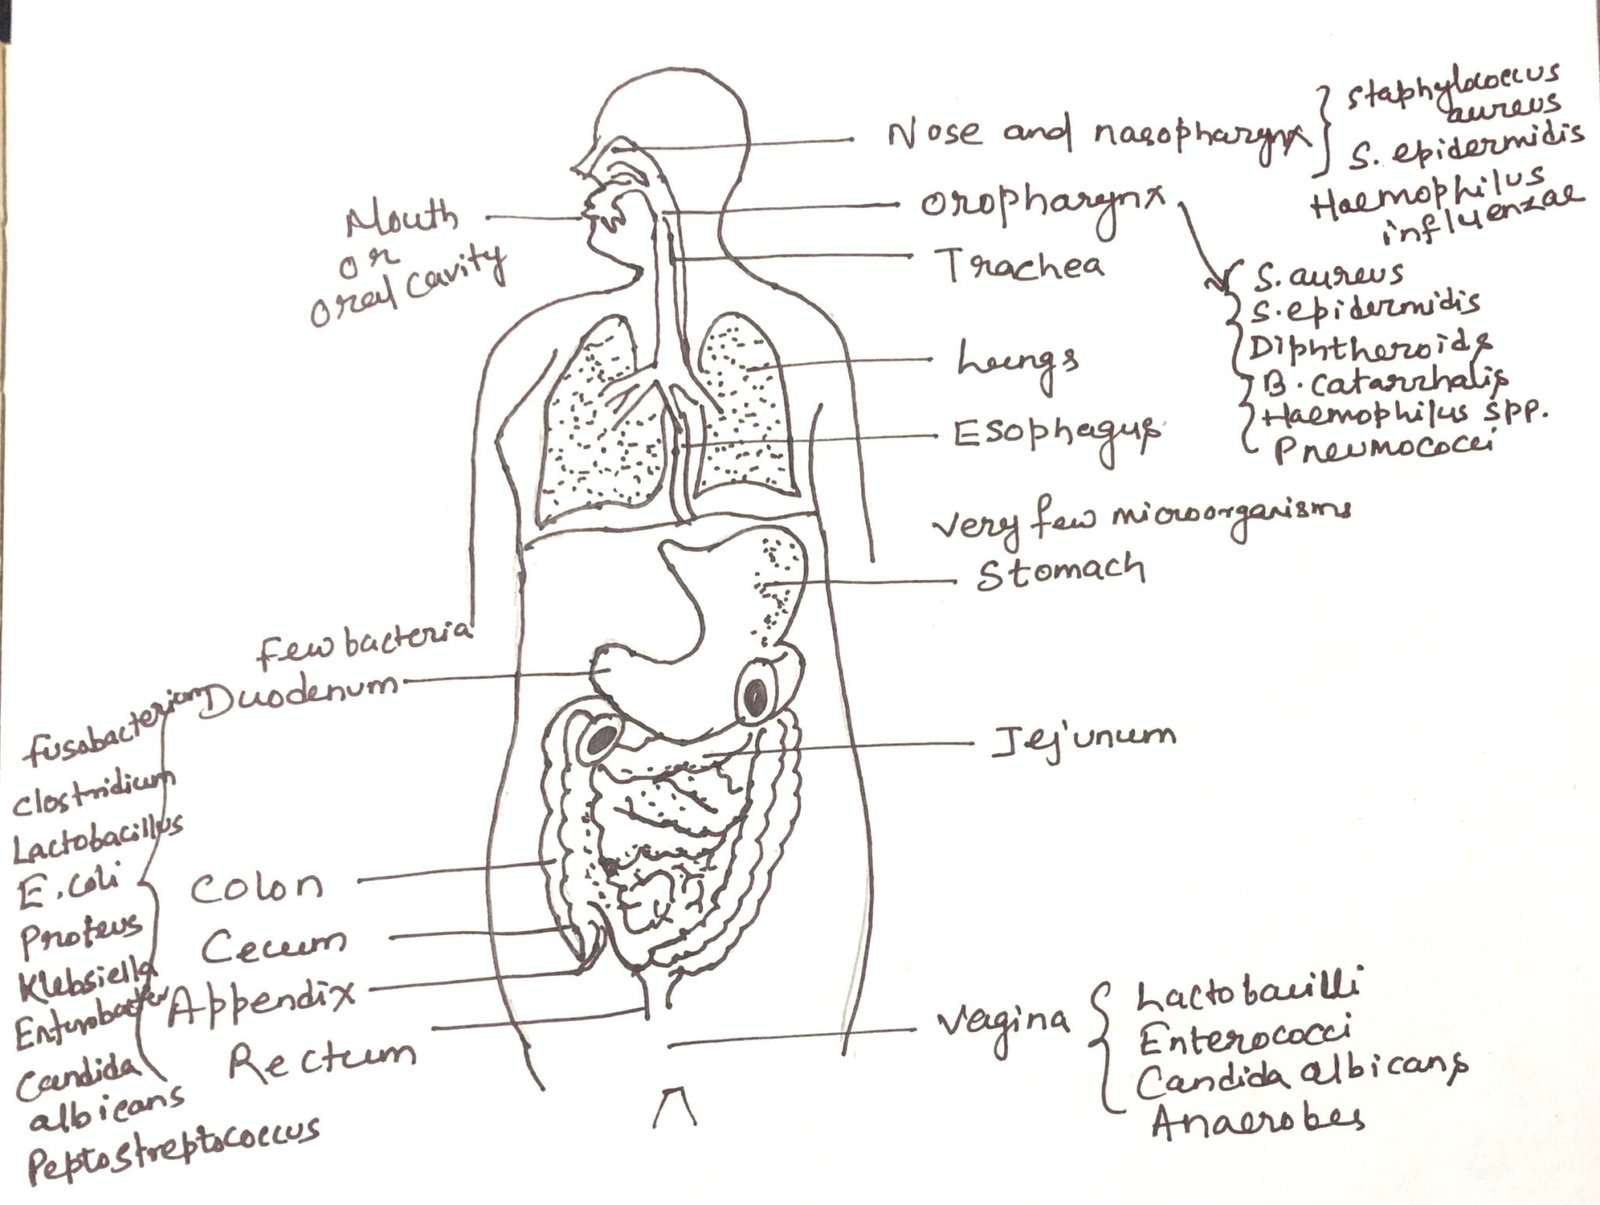 Nose and nasopharynx
Staphylococcus
aureus
S. epidermidis
Haemophilus
influenzae
Mouth
or
oral cavity
oropharynx
S. aureus
S. epidermidis
Diphtheroids
B. catarrhalis
Haemophilus spp.
Pneumococci
Trachea
Lungs
Esophagus
Very few microorganisms
Stomach
Few bacteria
Duodenum
Jejunum
Fusobacterium
Clostridium
Lactobacillus
E. coli
Proteus
Klebsiella
Enterobacter
Candida
albicans
Peptostreptococcus
Colon
Cecum
Appendix
Rectum
Vagina
Lactobacilli
Enterococci
Candida albicans
Anaerobes